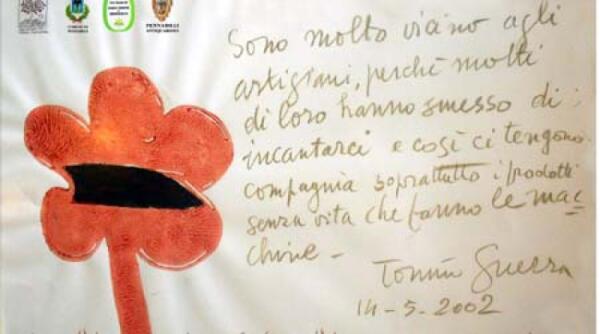 PENNABILLI
Sono molto vicino agli
artigiani, perché molti
di loro hanno smesso di
incantarci e così ci tengono
compagnia soprattutto i prodotti
senza vita che fanno le mac
chine -
Tonino Guerra
14-5-2002